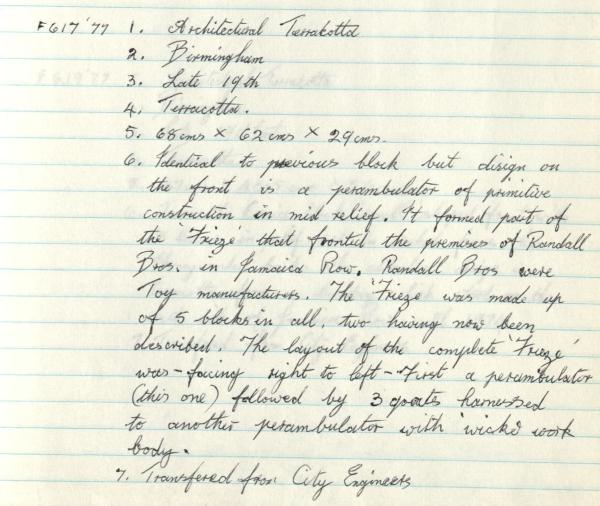 F617'77 1. Architectural Terrakotta
2. Birmingham
3. Late 19th
4. Terracotta.
5. 68cms × 62cms × 29cms.
6. Identical to previous block but disign on
the front is a perambulator of primitive
construction in mid relief. It formed part of
the 'Frieze' that fronted the premises of Randall
Bros. in Jamaica Row. Randall Bros were
Toy manufacturers. The 'Frieze' was made up
of 5 blocks in all, two having now been
described. The layout of the complete 'Frieze'
was - facing right to left - First a perambulator
(this one) followed by 3 goats harnessed
to another perambulator with 'wicks work
body.
7. Transfered from City Engineers